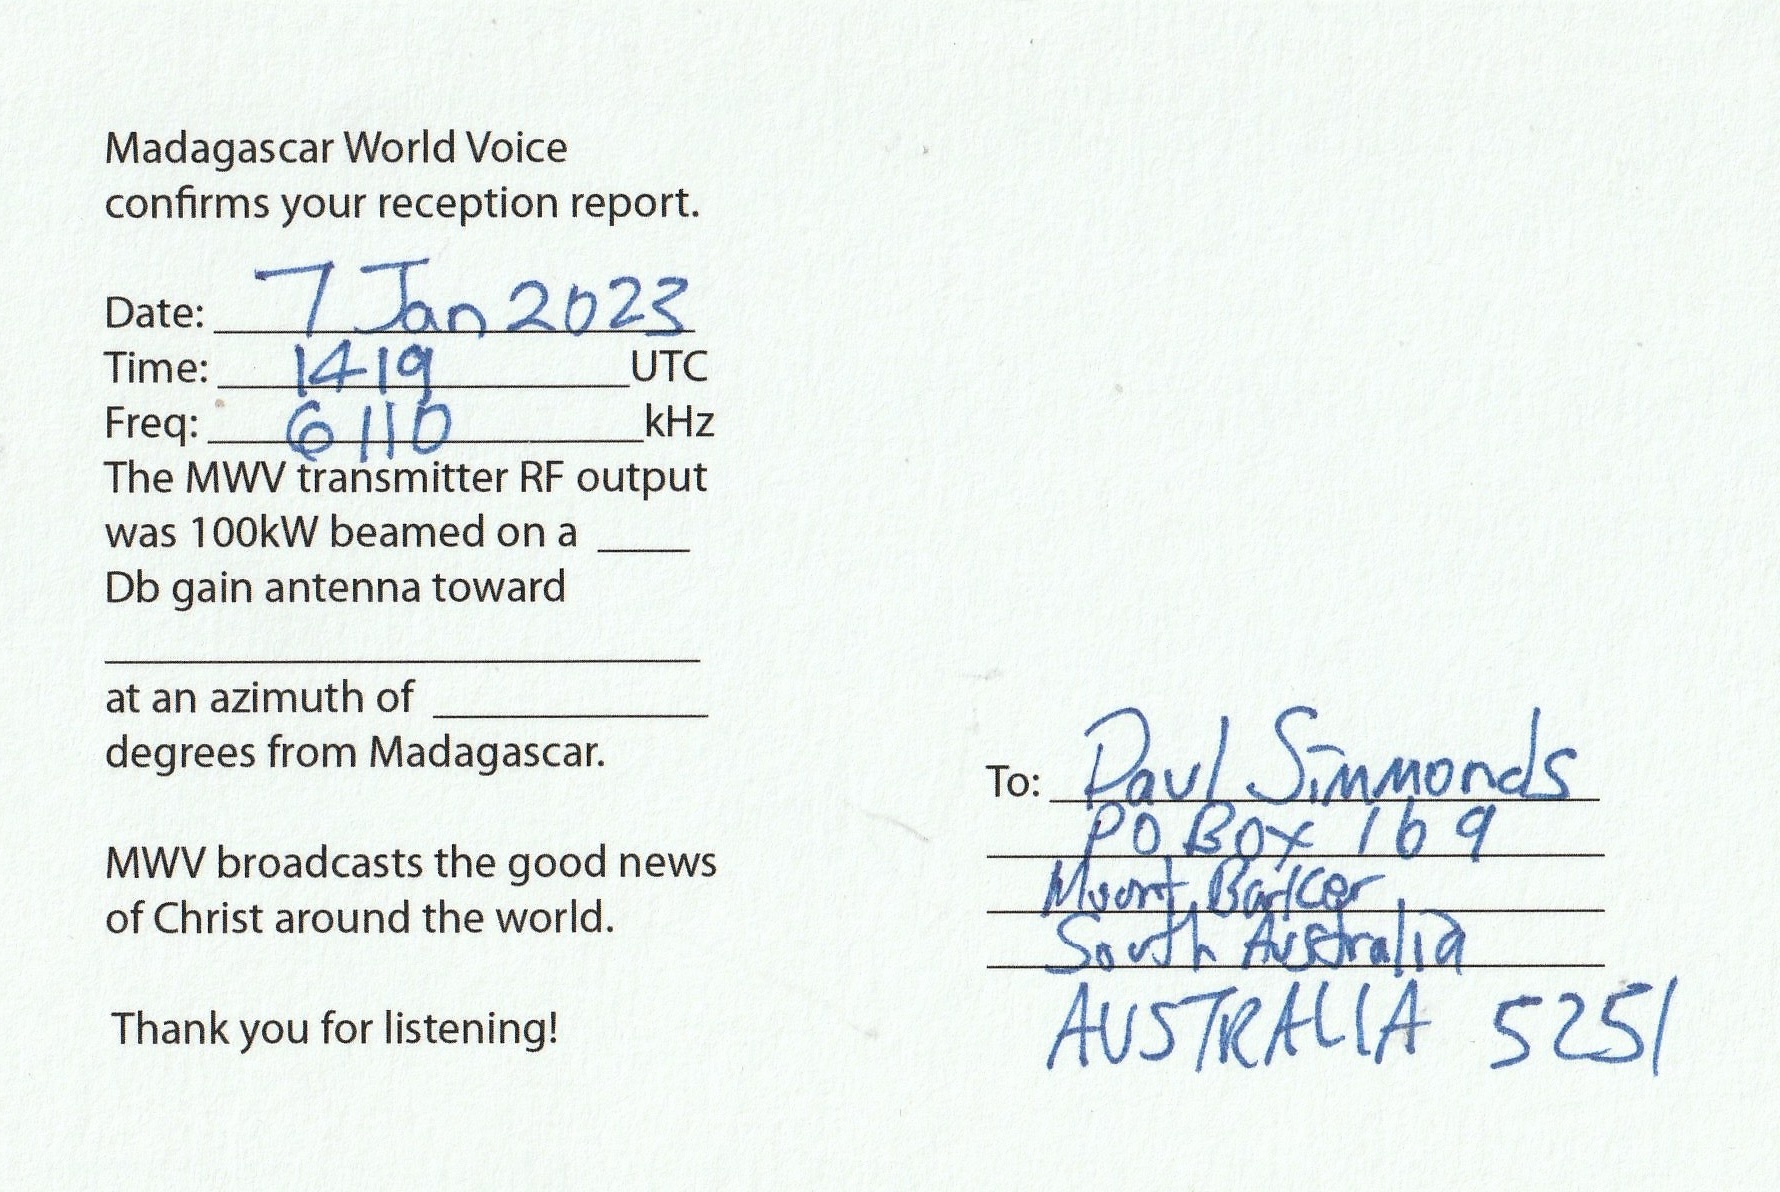 Madagascar World Voice
confirms your reception report.
Date: 7 Jan 2023
Time: 1419 UTC
Freq: 6110 kHz
The MWV transmitter RF output
was 100kW beamed on a ____
Db gain antenna toward
____
at an azimuth of ____
degrees from Madagascar.
MWV broadcasts the good news
of Christ around the world.
Thank you for listening!
To: Paul Simmonds
PO Box 169
Mount Barker
South Australia
AUSTRALIA 5251